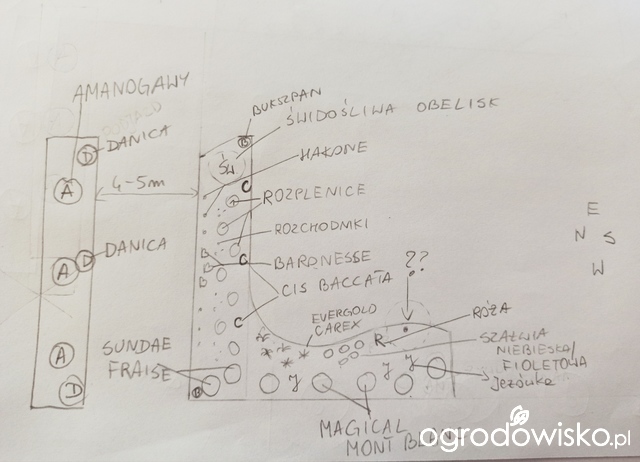 AMANOGAWY
BUKSZPAN
ŚWIDOŚLIWA OBELISK
D DANICA
B
ŚW
HAKONE
4-5m
A
C
ROZPLENICE
E
N S
W
ROZCHODNIKI
DANICA
A D
C
BARONESSE
??
CIS BACCATA
EVERGOLD
CAREX
RÓŻA
C
R
SZAŁWIA
NIEBIESKA/
FIOLETOWA
SUNDAE
FRAISE
A
D
B
J J J
Jeżówka
MAGICAL
MONT BLANC
ogrodowisko.pl